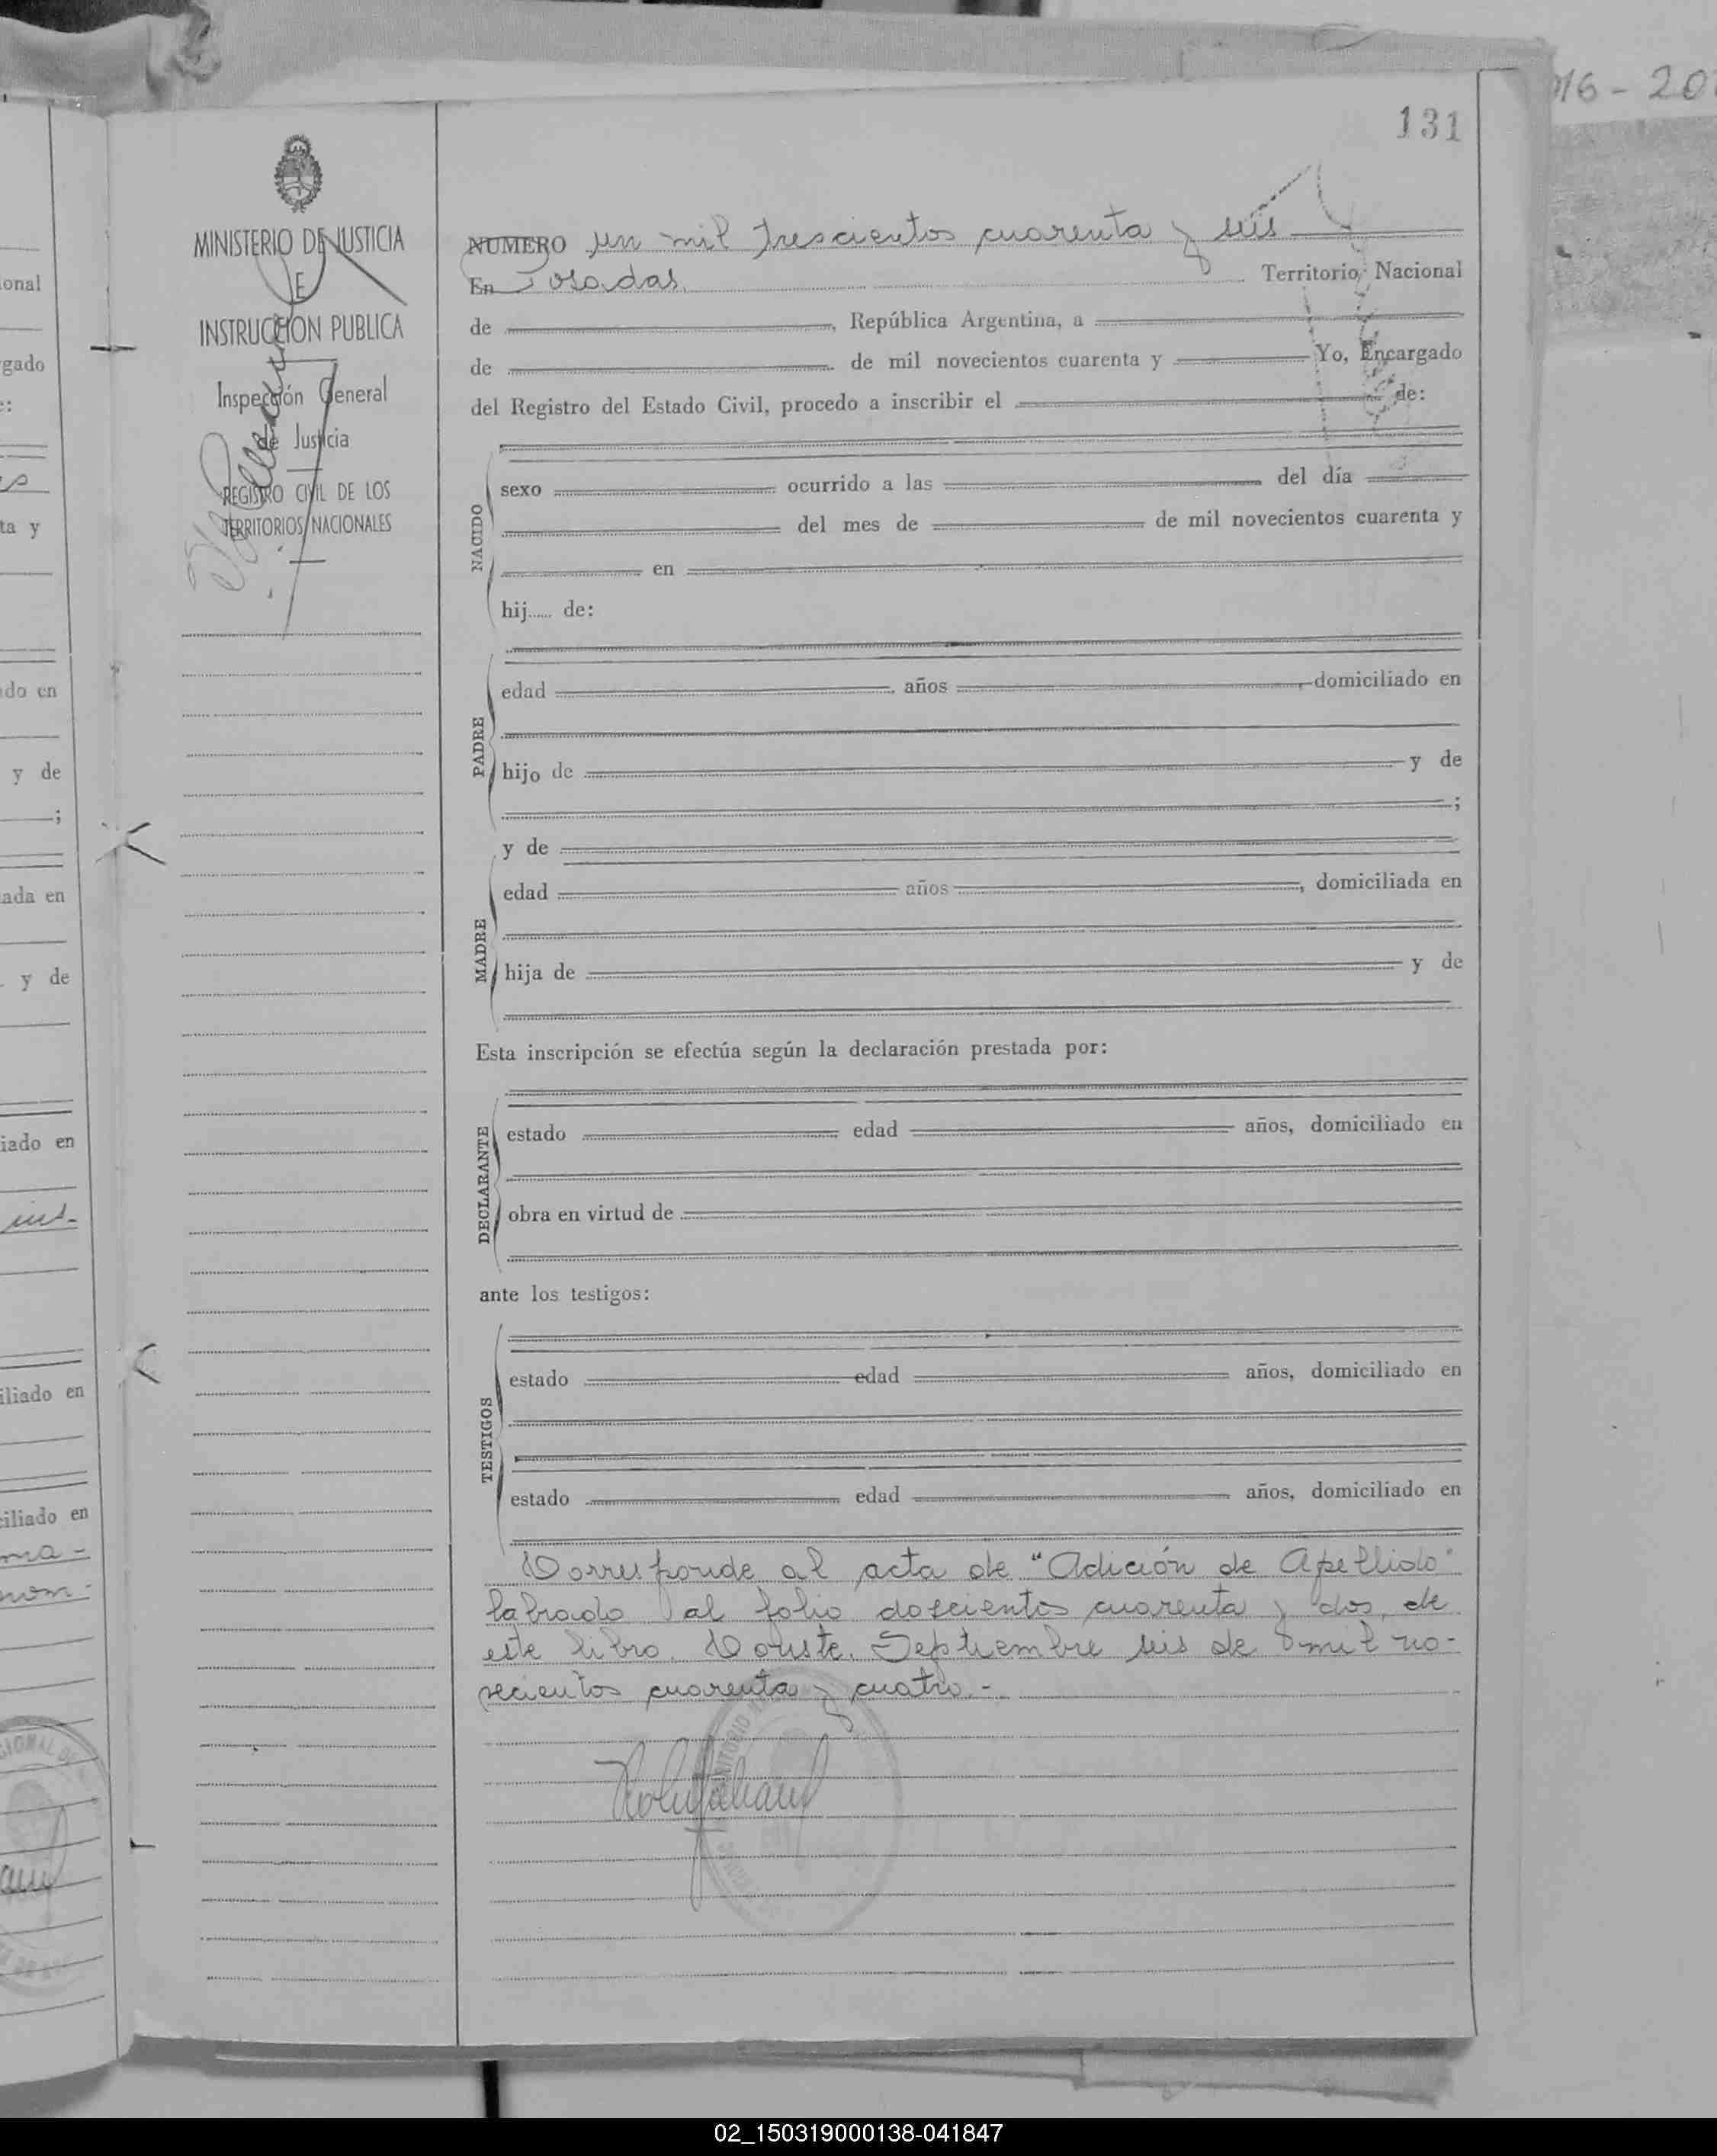 016 - 20
131
MINISTERIO DE JUSTICIA
E
INSTRUCCION PUBLICA
Inspección General
de Justicia
REGISTRO CIVIL DE LOS
TERRITORIOS NACIONALES
NUMERO un mil trescientos cuarenta y seis
En Posadas. Territorio Nacional
de , República Argentina, a
de de mil novecientos cuarenta y Yo, Encargado
del Registro del Estado Civil, procedo a inscribir el de:
NACIDO
sexo ocurrido a las del día
del mes de de mil novecientos cuarenta y
en
hij..... de:
PADRE
edad años domiciliado en
hijo de y de
;
MADRE
y de
edad años , domiciliada en
hija de y de
Esta inscripción se efectúa según la declaración prestada por:
DECLARANTE
estado edad años, domiciliado en
obra en virtud de
ante los testigos:
TESTIGOS
estado edad años, domiciliado en
estado edad años, domiciliado en
Corresponde al acta de "Adición de Apellido"
labrado al folio doscientos cuarenta y dos, de
este libro. Conste. Septiembre seis de mil no-
vecientos cuarenta y cuatro.-
onal
gado
ta y
do en
y de
;
ada en
y de
iado en
iliado en
ciliado en
ma -
nom-
02_150319000138-041847